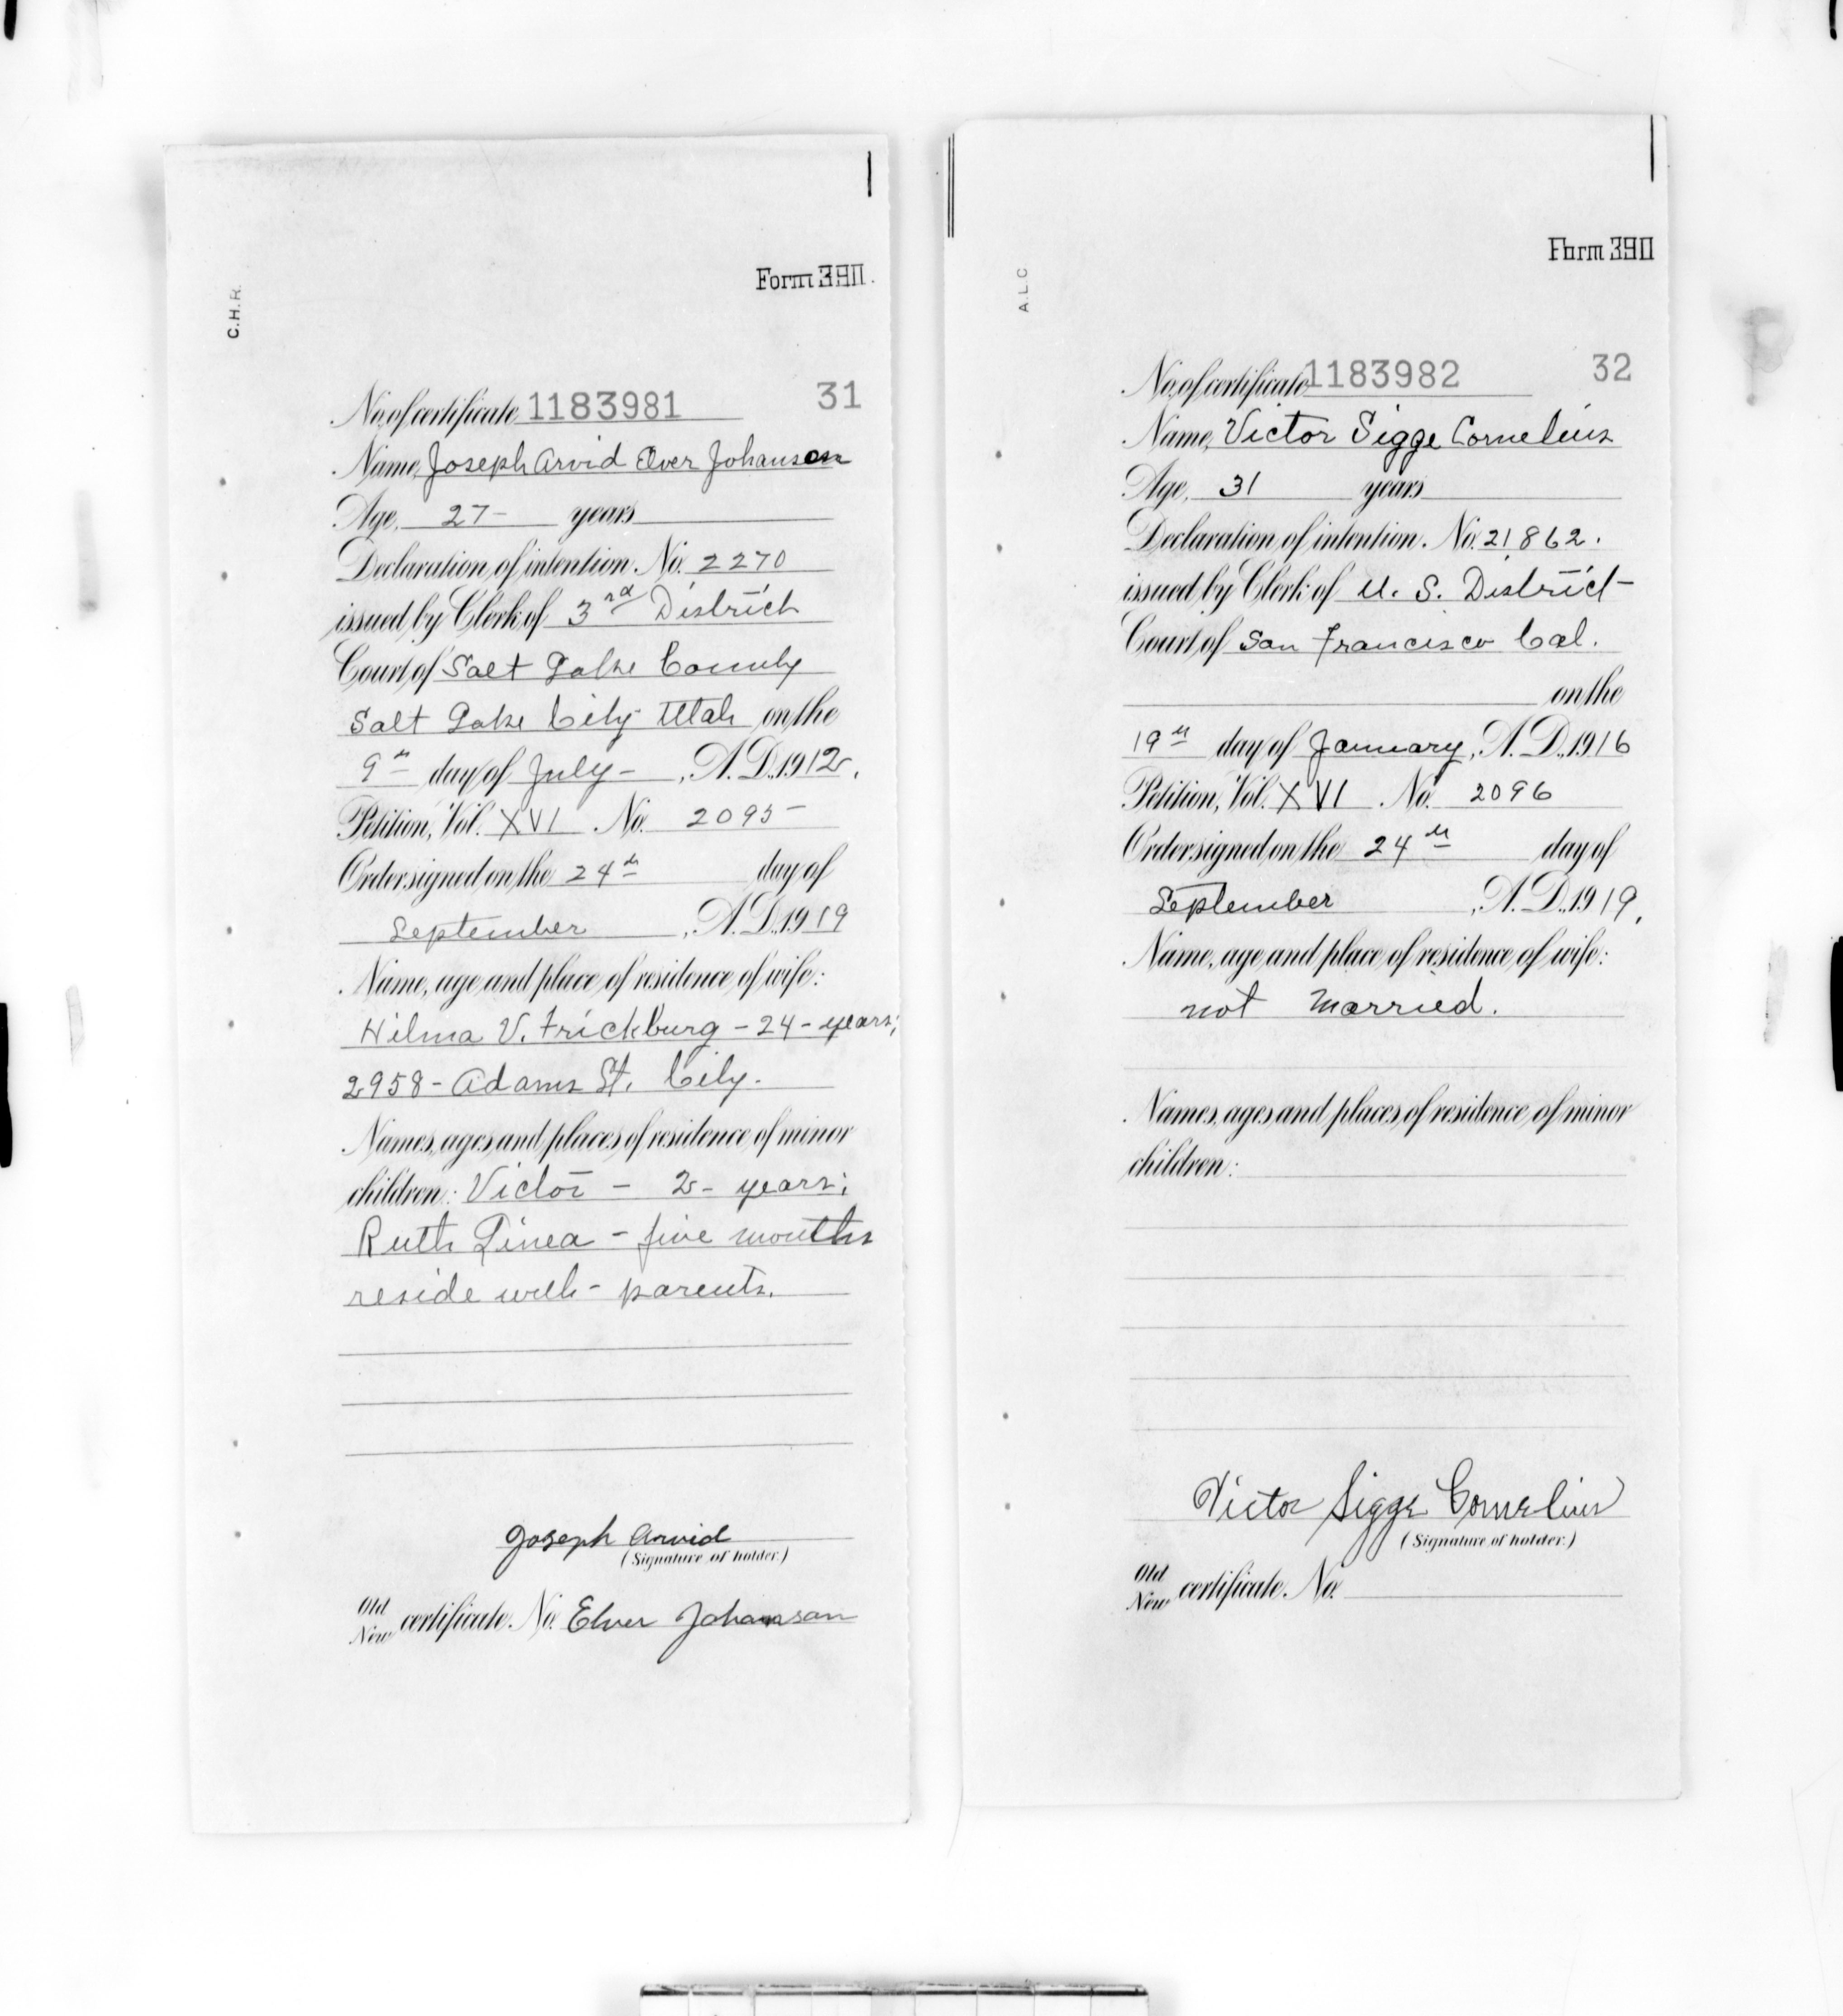 Form 390.
C.H.R.
No. of certificate 1183981 31
Name, Joseph Arvid Elver Johanson
Age, 27- years
Declaration of intention. No. 2270
issued by Clerk of 3rd District
Court of Salt Lake County
Salt Lake City Utah on the
9th day of July -, A.D. 1912,
Petition, Vol. XVI No. 2095 -
Order signed on the 24th day of
September, A.D. 1919
Name, age and place of residence of wife:
Hilma V. Frickburg - 24 - years;
2958 - Adams St. City.
Names, ages and places of residence of minor
children: Victor - 2 - years;
Ruth Linea - five months
reside with - parents.
Joseph Arvid
(Signature of holder.)
Old
New certificate. No. Elver Johanson
Form 390
A.L.C
No. of certificate 1183982 32
Name, Victor Sigge Cornelius
Age, 31 years
Declaration of intention. No. 21862.
issued by Clerk of U. S. District -
Court of San Francisco Cal.
on the
19th day of January, A.D. 1916
Petition, Vol. XVI No. 2096
Order signed on the 24th day of
September, A.D. 1919.
Name, age and place of residence of wife:
not married.
Names, ages and places of residence of minor
children:
Victor Sigge Cornelius
(Signature of holder.)
Old
New certificate. No.